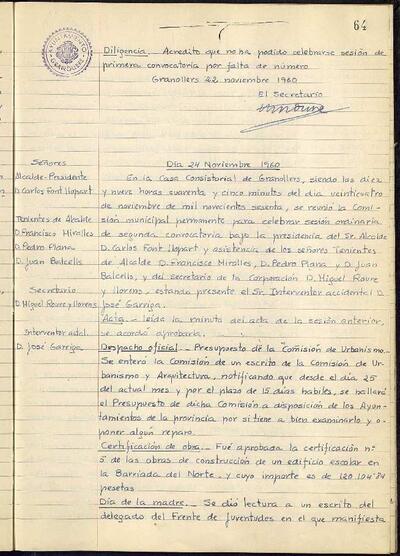 64
AYUNTAMIENTO
GRANOLLERS
Diligencia. Acredito que no ha podido celebrarse sesión de
primera convocatoria por falta de número
Granollers 22 noviembre 1960
El Secretario
Señores
Alcalde-Presidente
D. Carlos Font Llopart
Tenientes de Alcalde
D. Francisco Miralles
D. Pedro Plana
D. Juan Balcells
Secretario
D. Miguel Roure y Llorens
Interventor acdal.
D. José Garriga
Día 24 Noviembre 1960
En la Casa Consistorial de Granollers, siendo las diez
y nueve horas cuarenta y cinco minutos del día veinticuatro
de noviembre de mil novecientos sesenta, se reunió la Comi-
sión municipal permanente para celebrar sesión ordinaria
de segunda convocatoria bajo la presidencia del Sr Alcalde
D. Carlos Font Llopart y asistencia de los señores Tenientes
de Alcalde D. Francisco Miralles, D. Pedro Plana y D. Juan
Balcells, y del secretario de la Corporación D. Miguel Roure
y Llorens, estando presente el Sr. Interventor accidental D.
José Garriga.
Acta - leída la minuta del acta de la sesión anterior,
se acordó aprobarla.
Despacho oficial - Presupuesto de la Comisión de Urbanismo.-
Se enteró la Comisión de un escrito de la Comisión de Ur-
banismo y Arquitectura, notificando que desde el día 25
del actual mes y por el plazo de 15 días habiles, se hallará
el Presupuesto de dicha Comisión a disposición de los Ayun-
tamientos de la provincia por si tiene a bien examinarlo y o-
poner algún reparo.
Certificación de obra.- Fué aprobada la certificación nº
5 de las obras de construcción de un edificio escolar en
la Barriada del Norte, y cuyo importe es de 120.104'84
pesetas
Día de la madre.- Se dió lectura a un escrito del
delegado del Frente de Juventudes en el que manifiesta